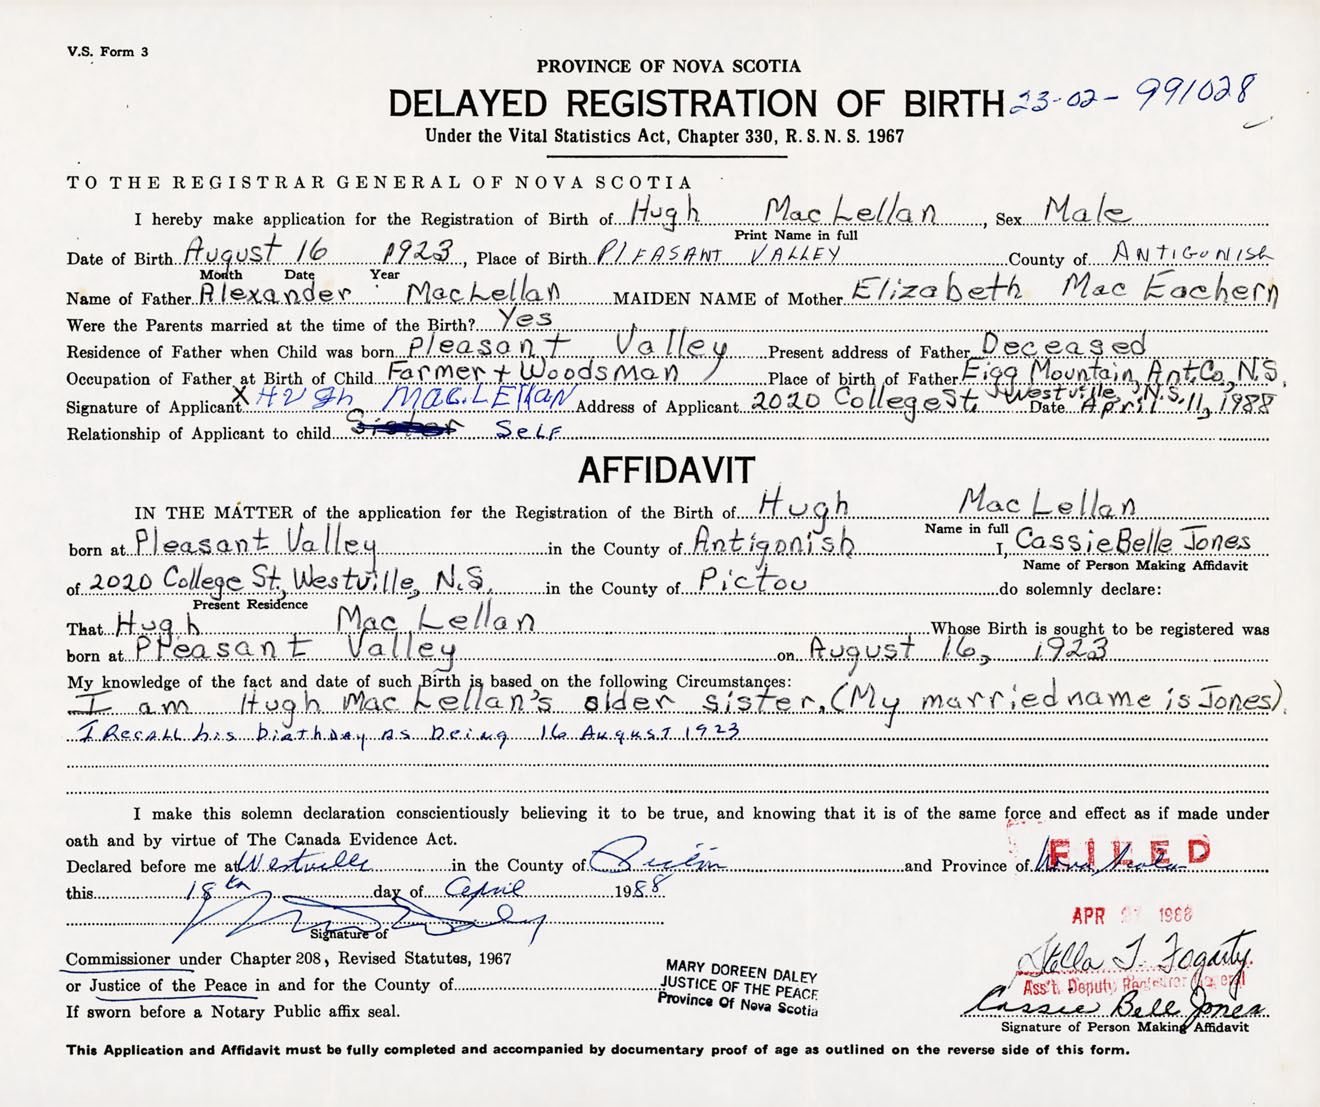 V.S. Form 3
PROVINCE OF NOVA SCOTIA
DELAYED REGISTRATION OF BIRTH 23-02-991028
Under the Vital Statistics Act, Chapter 330, R.S.N.S. 1967
TO THE REGISTRAR GENERAL OF NOVA SCOTIA
I hereby make application for the Registration of Birth of Hugh MacLellan, Sex Male
Print Name in full
Date of Birth August 16 1923, Place of Birth PLEASANT VALLEY County of ANTIGONISH
Month Date Year
Name of Father Alexander MacLellan MAIDEN NAME of Mother Elizabeth Mac Eachern
Were the Parents married at the time of the Birth? Yes
Residence of Father when Child was born Pleasant Valley Present address of Father Deceased
Occupation of Father at Birth of Child Farmer + Woodsman Place of birth of Father Eigg Mountain, Ant.Co, N.S.
Signature of Applicant X HUgh MAC.LELLAN Address of Applicant 2020 College St. Westville, N.S. Date April 11, 1988
Relationship of Applicant to child Sister SELF
AFFIDAVIT
IN THE MATTER of the application for the Registration of the Birth of Hugh Mac Lellan
Name in full
born at Pleasant Valley in the County of Antigonish I, Cassie Belle Jones
Name of Person Making Affidavit
of 2020 College St, Westville, N.S. in the County of Pictou do solemnly declare:
Present Residence
That Hugh Mac Lellan Whose Birth is sought to be registered was
born at Pleasant Valley on August 16, 1923
My knowledge of the fact and date of such Birth is based on the following Circumstances:
I am Hugh Mac Lellan's older sister. (My married name is Jones).
I Recall his birthday as being 16 August 1923
I make this solemn declaration conscientiously believing it to be true, and knowing that it is of the same force and effect as if made under
oath and by virtue of The Canada Evidence Act.
Declared before me at Westville in the County of Pictou and Province of Nova Scotia
FILED
this 18th day of April 1988
APR 1988
Signature of
Commissioner under Chapter 208, Revised Statutes, 1967
Stella T. Fogarty
or Justice of the Peace in and for the County of
MARY DOREEN DALEY
JUSTICE OF THE PEACE
Province Of Nova Scotia
Ass't. Deputy Registrar General
Cassie Bell Jones
If sworn before a Notary Public affix seal.
Signature of Person Making Affidavit
This Application and Affidavit must be fully completed and accompanied by documentary proof of age as outlined on the reverse side of this form.